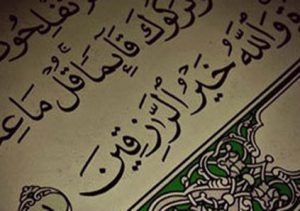 تُفْلِحُو
وَتَرَكُوكَ قَآئِمًا قُلْ مَا عِ
وَٱللَّهُ خَيْرُ ٱلرَّٰزِقِينَ